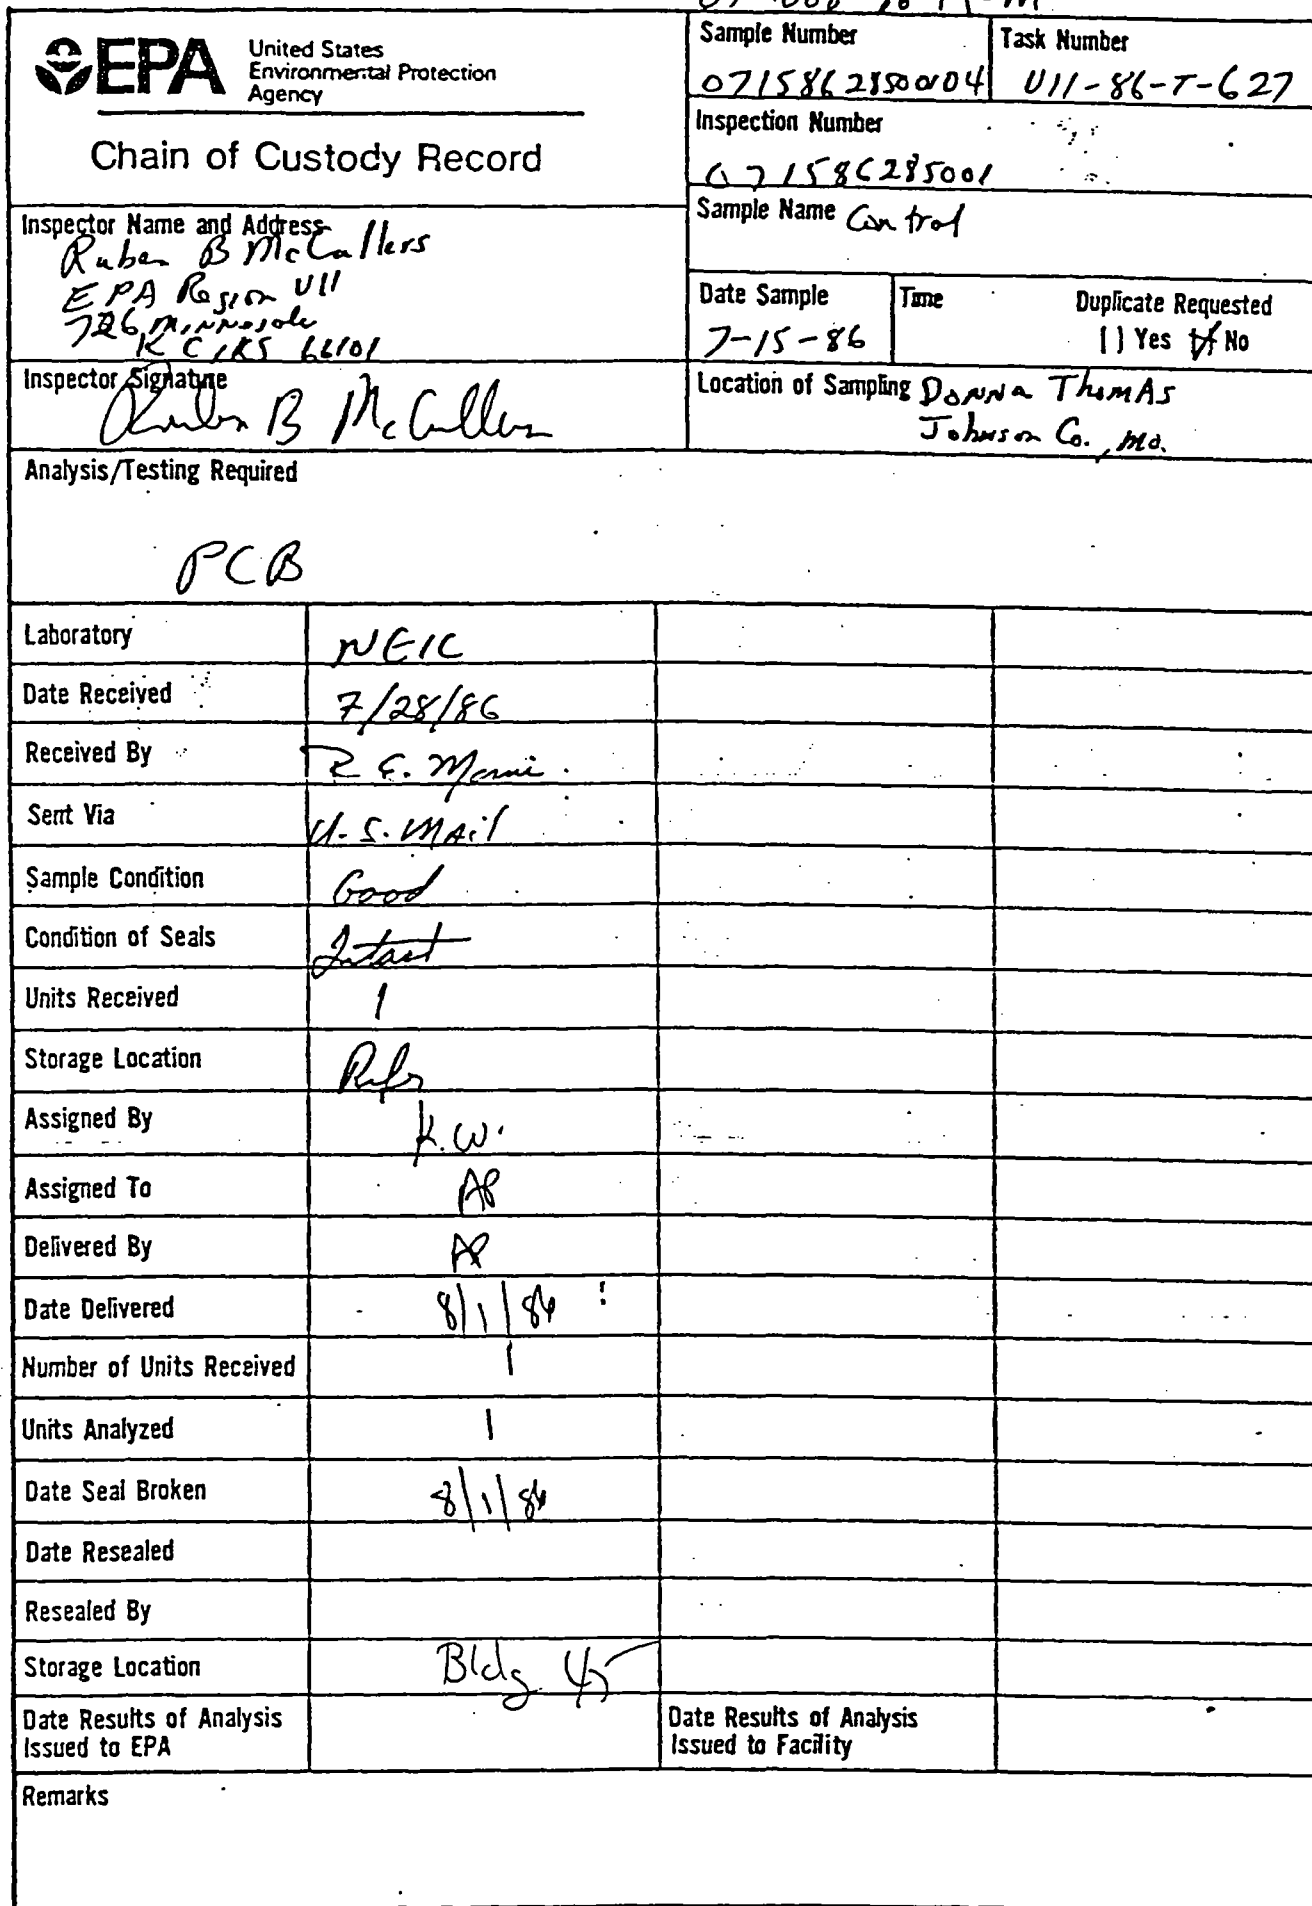 EPA
United States
Environmental Protection
Agency
Chain of Custody Record
Sample Number
07158628500104
Task Number
VII-86-T-627
Inspection Number
071586285001
Sample Name Control
Inspector Name and Address
Ruben B McCullers
EPA Region VII
726 Minnesota
KC, KS 66101
Date Sample
7-15-86
Time
Duplicate Requested
[ ] Yes [X] No
Inspector Signature
Ruben B McCullers
Location of Sampling Donna Thomas
Johnson Co., Mo.
Analysis/Testing Required
PCB
Laboratory NEIC
Date Received 7/28/86
Received By
Sent Via U.S. Mail
Sample Condition Good
Condition of Seals Intact
Units Received 1
Storage Location
Assigned By K.W.
Assigned To AP
Delivered By AP
Date Delivered 8/1/86
Number of Units Received 1
Units Analyzed 1
Date Seal Broken 8/1/86
Date Resealed
Resealed By
Storage Location Bldg 45
Date Results of Analysis
Issued to EPA
Date Results of Analysis
Issued to Facility
Remarks